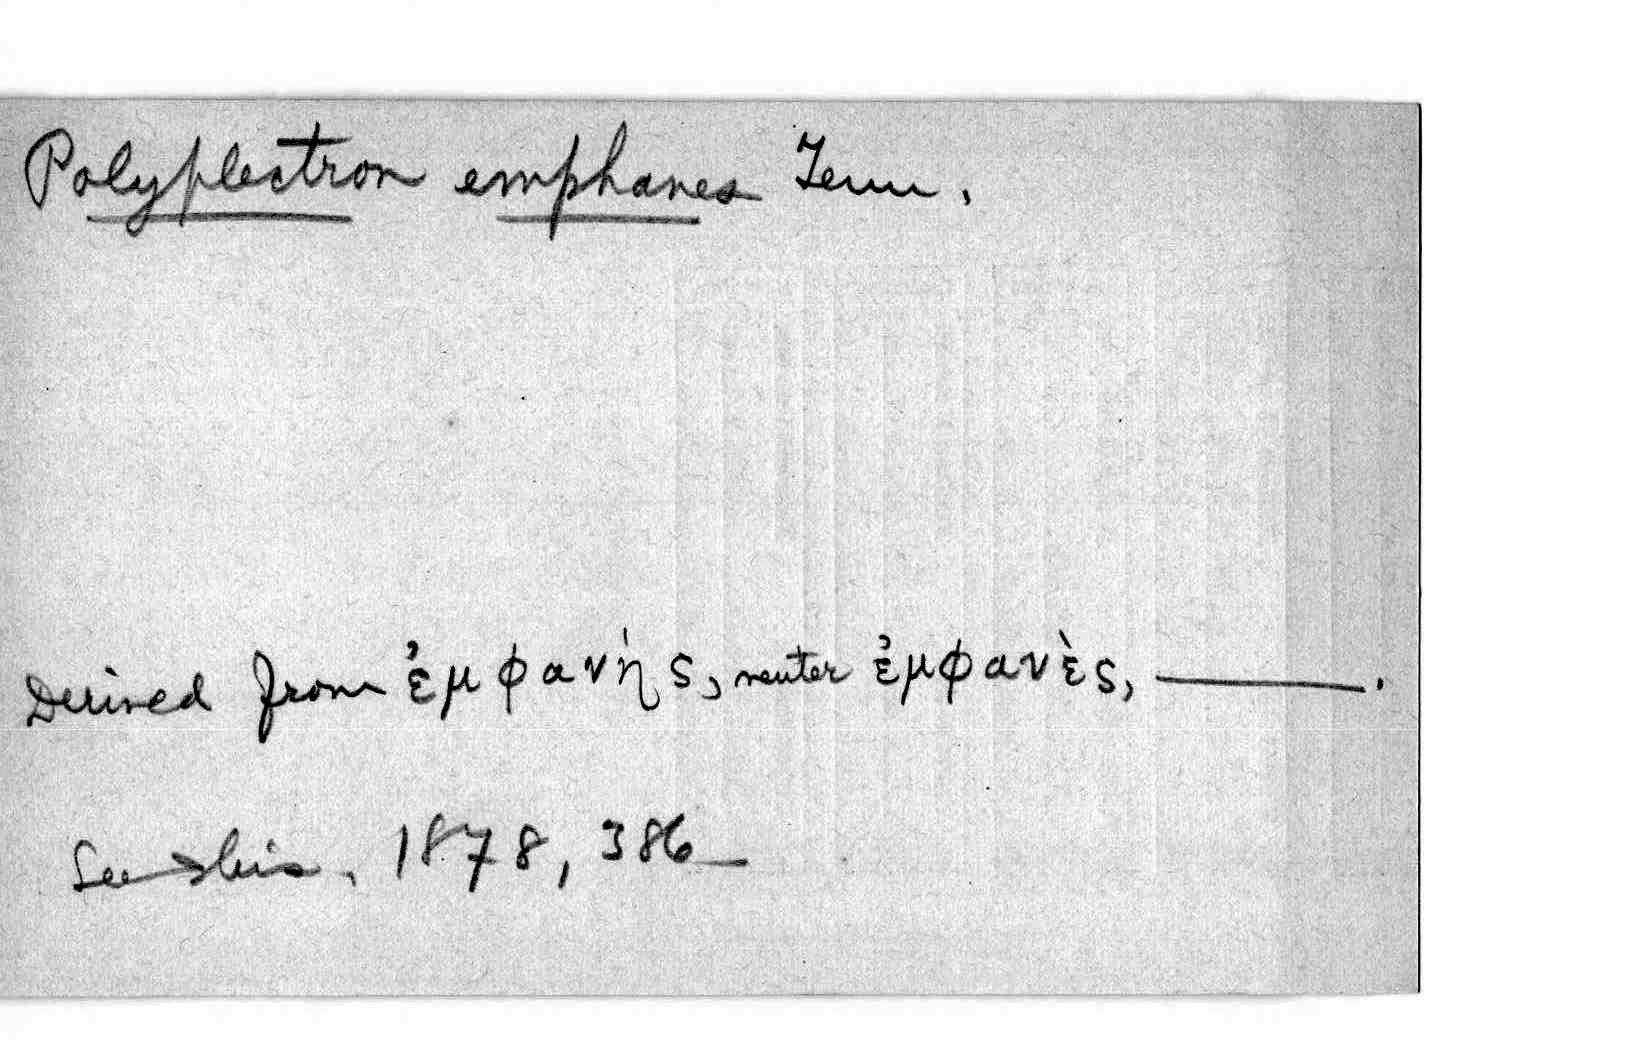 Polyplectron emphanes Tem.
Derived from ἐμφανής, neuter ἐμφανὲς, ———.
See Ibis, 1878, 386